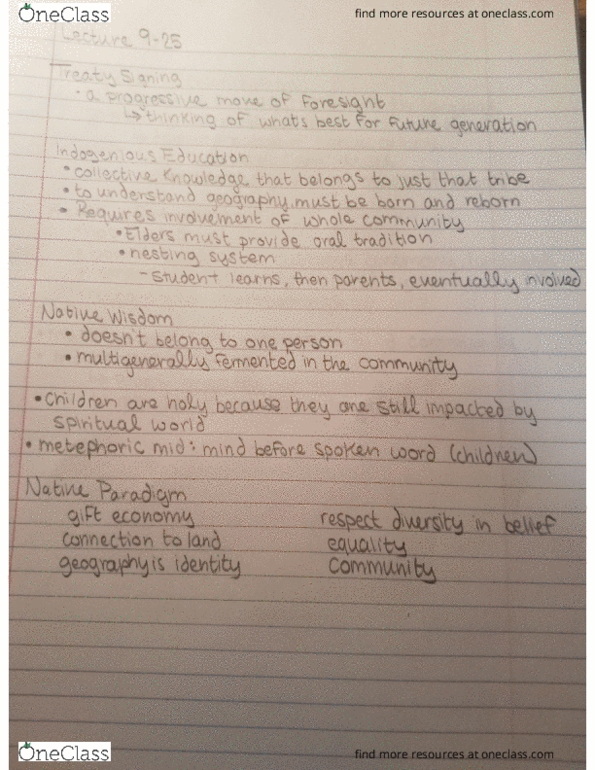 OneClass
find more resources at oneclass.com
Lecture 9-25
Treaty Signing
• a progressive move of foresight
↳ thinking of whats best for future generation
Indogenious Education
• collective knowledge that belongs to just that tribe
• to understand geography, must be born and reborn
• Requires involvement of whole community
• Elders must provide oral tradition
• nesting system
- Student learns, then parents, eventually involved
Native Wisdom
• doesn't belong to one person
• multigenerally fermented in the community
• Children are holy because they are still impacted by
spiritual world
• metephoric mid: mind before spoken word (children)
Native Paradigm
gift economy respect diversity in belief
connection to land equality
geography is identity community
OneClass
find more resources at oneclass.com